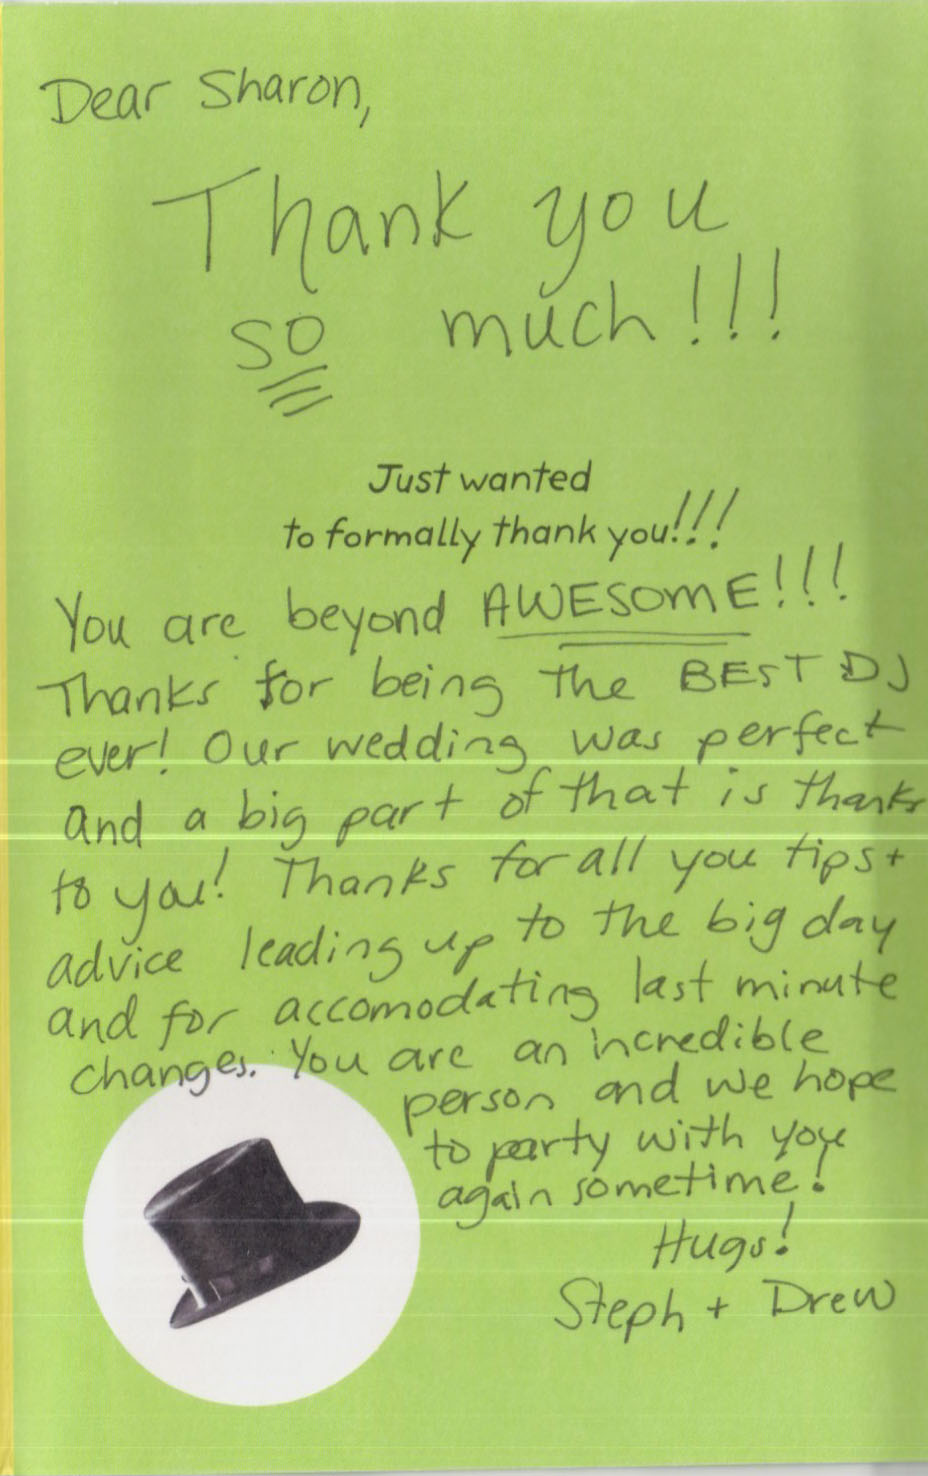 Dear Sharon,
Thank you
so much!!!
Just wanted
to formally thank you!!!
You are beyond AWESOME!!!
Thanks for being the BEST DJ
ever! Our wedding was perfect
and a big part of that is thanks
to you! Thanks for all you tips +
advice leading up to the big day
and for accomodating last minute
changes. You are an incredible
person and we hope
to party with you
again sometime!
Hugs!
Steph + Drew